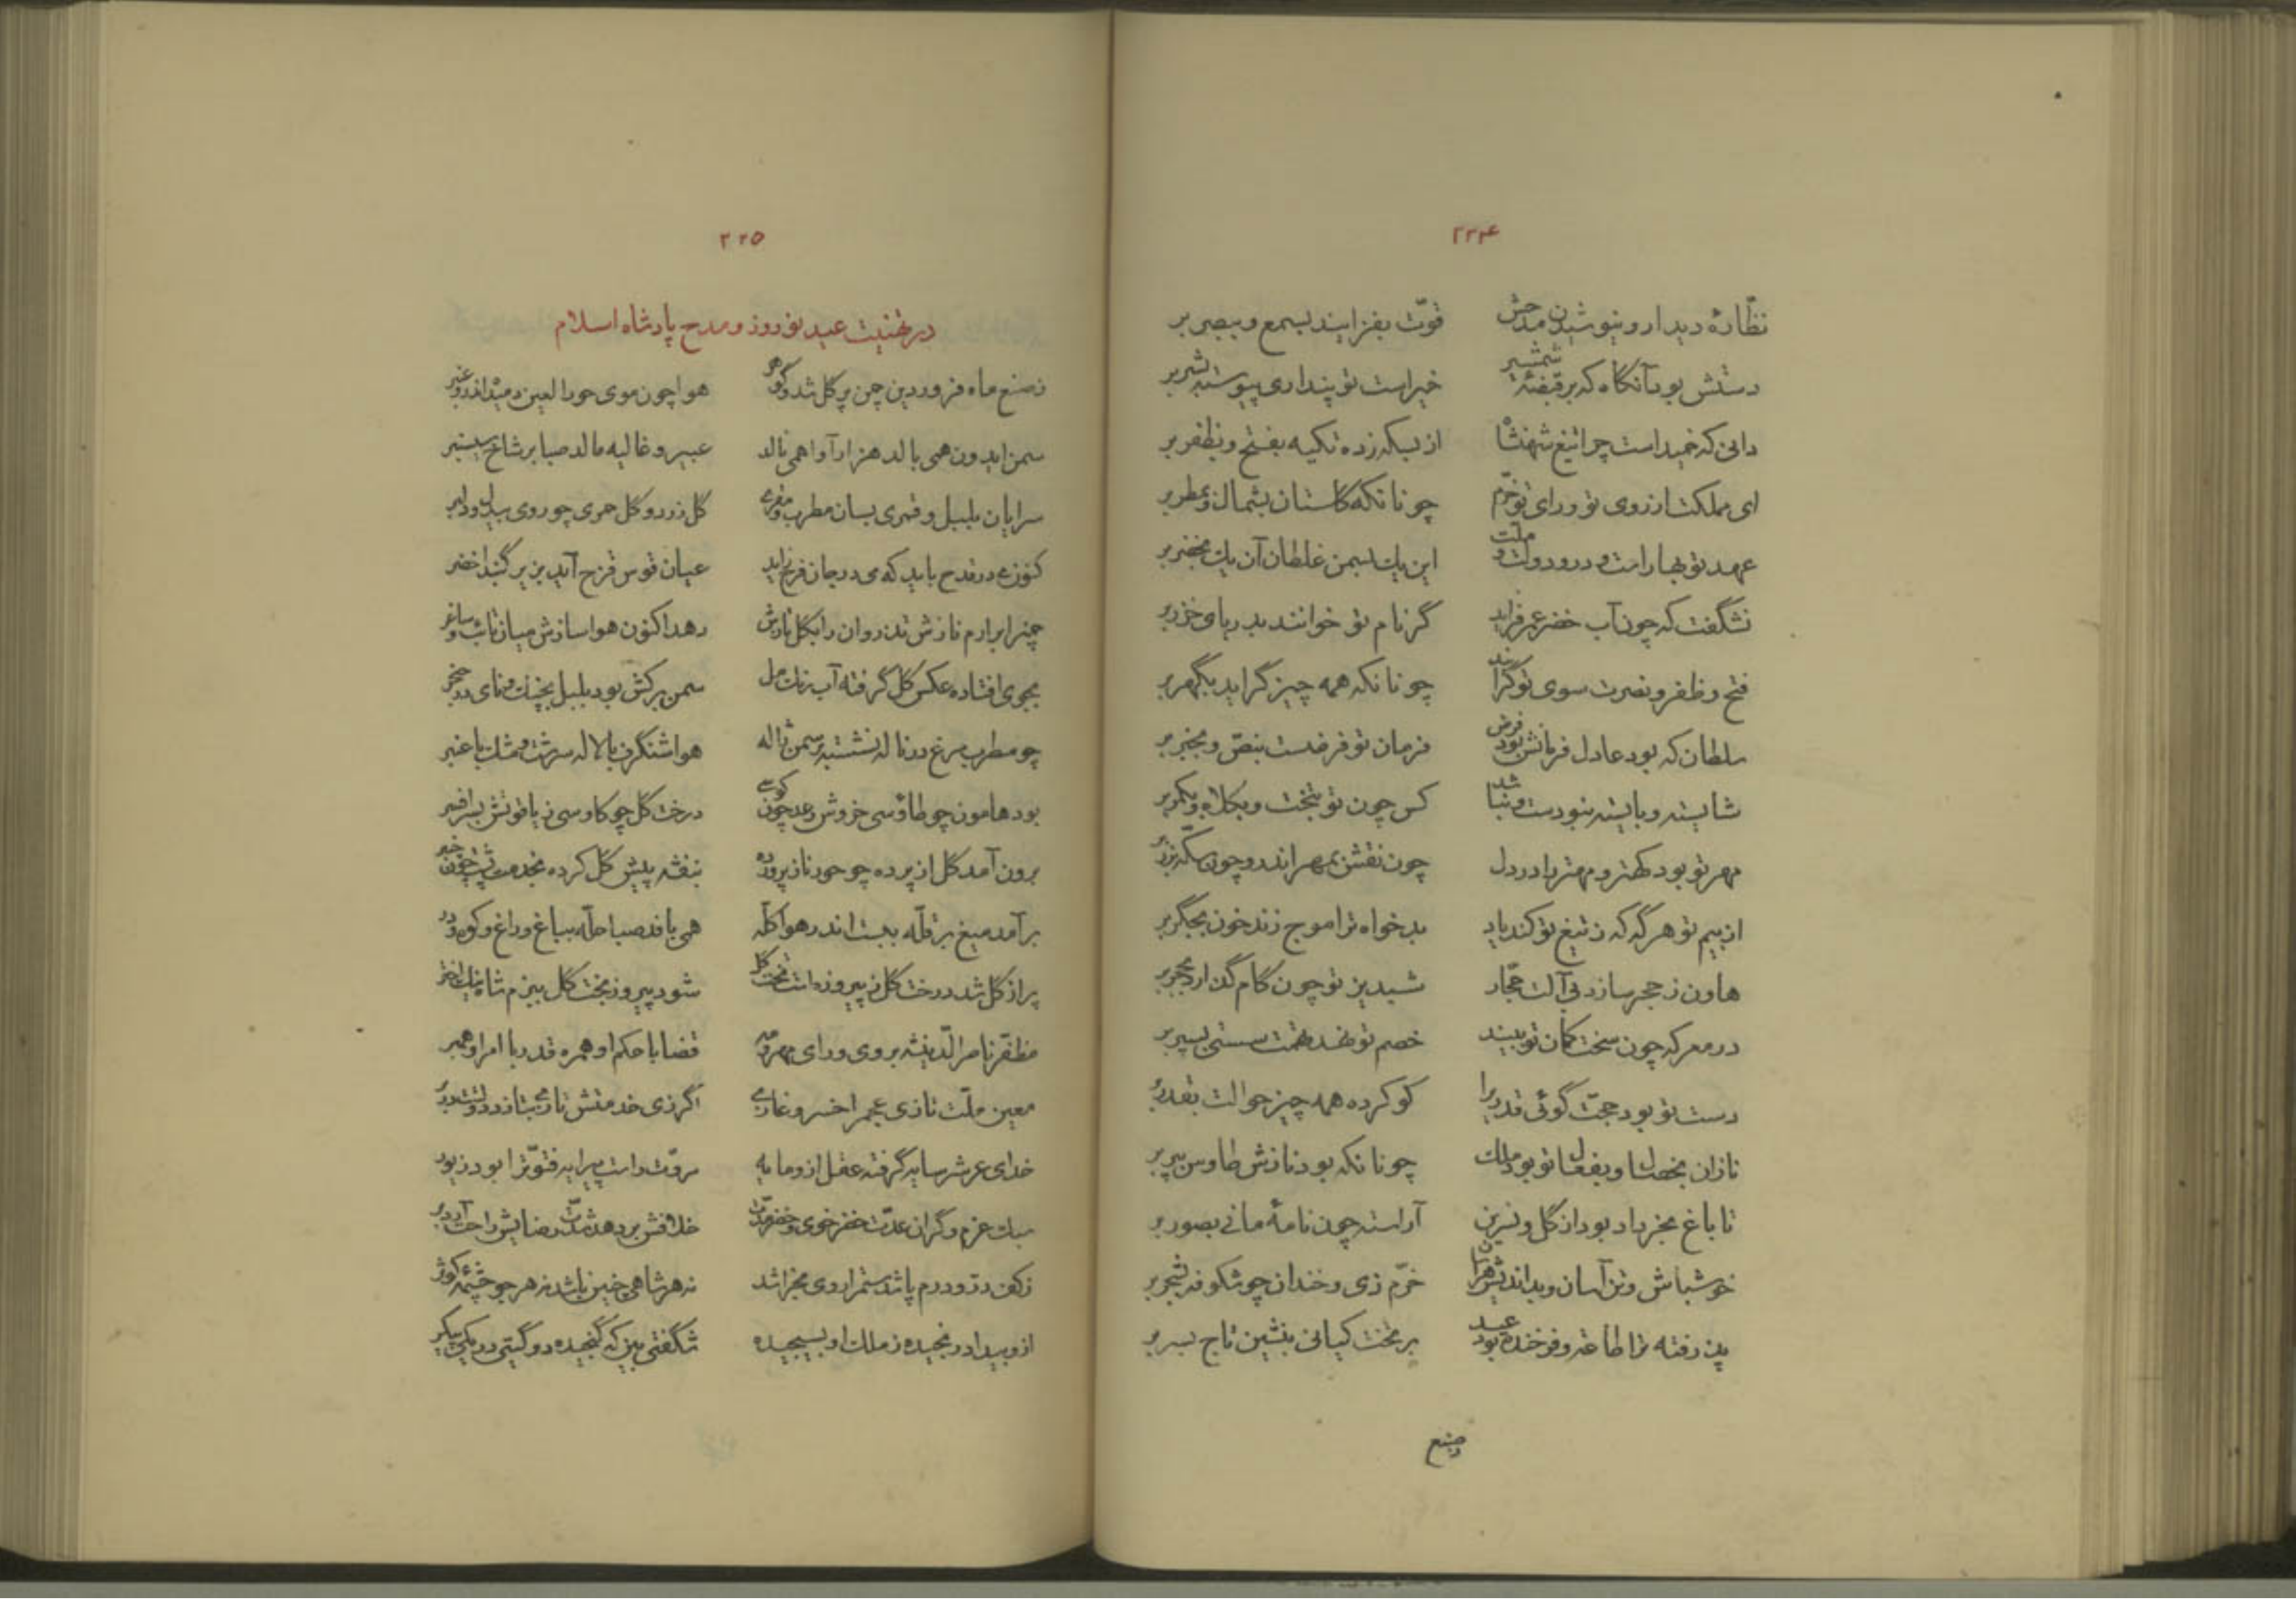 ۲۲۴
نظّارهٔ دیدار و نیوشیدن مدحش قوّت بفزایند بسمع و ببصر بر
دستش بود آنگاه که بر قبضهٔ شمشیر خیر است تو پنداری پیوسته بشر بر
دانی که خمیداست چرا تیغ شهنشاه از بسکه زده تکیه بفتح و بظفر بر
ای مملکت از روی تو و رای تو خرّم چونانکه گلستان بشمال و بمطر بر
عهد تو بهار است و درو دولت و ملّت این یک بسمن غلطان آن یک بخضر بر
نشگفت که چون آب خضر عمر فزاید گر نام تو خوانند بدریای خزر بر
فتح و ظفر و نصرت سوی تو گرایند چونانکه همه چیز گراید بگهر بر
سلطان که بود عادل فرمانش بود فرض فرمان تو فرضست بنصّ و بخبر بر
شایسته و بایسته نبودست و نباشد کس چون تو بتخت و بکلاه و بکمر بر
مهر تو بود کهتر و مهتر را در دل چون نقش بمهر اندر و چون سکّه بزر بر
از بیم تو هر گه که ز تیغ تو کند یاد بدخواه ترا موج زند خون بجگر بر
هاون ز حجر سازد بی آلت حجّار شبدیز تو چون گام گذارد بحجر بر
در معرکه چون سخت کمان تو ببیند خصم تو نهد تهمت سستی بسپر بر
دست تو بود حجّت گوئی قدری را کو کرده همه چیز حوالت بقدر بر
نازان بخصال و بفعال تو بود ملک چونانکه بود نازش طاوس بپر بر
تا باغ بخرداد بود از گل و نسرین آراسته چون نامهٔ مانی بصور بر
خوش باش و تن آسان و بداندیش هراسان خرّم زی و خندان چو شکوفه بشجر بر
پذرفته ترا طاعت و فرخنده بود عید بر تخت کیانی بنشین تاج بسر بر
ز صنع
۲۲۵
در تهنیت عید نوروز و مدح پادشاه اسلام
ز صنع ماه فروردین چمن پر گل شد و گوهر هوا چون موی حورالعین دمید اندر و عنبر
سمن ایدون همی بالد هزار آوا همی نالد عبیر و غالیه مالد صبا بر شاخ سیسنبر
سرایان بلبل و قمری بسان مطرب و مقری گل زرد و گل حمری چو روی بیدل و دلبر
کنون می در قدح باید که می در جان فرح زاید عیان قوس قزح آید بزیر گنبد اخضر
چمنرا برارم نازش تذروان را بگل تازش دهد اکنون هوا سازش میان تائب و ساغر
بجوی افتاده عکس گل گرفته آب رنگ مل سمن بر کش بود بلبل بچنگ و نای در حنجر
چو مطرب مرغ در ناله نشسته بر سمن ژاله هوا شنگرف بالاله سرشت و مشک با عنبر
بود هامون چو طاوسی خروش رعد چون کوسی درخت گل چو کاوسی ز یاقوتش بسر افسر
برون آمد گل از پرده چو حور ناز پرورده بنفشه پیش گل کرده بخدمت پشت چون
برآمد میغ بر قلّه ببست اندر هوا کلّه همی بافد صبا حلّه بباغ و راغ و کوه و در
پر از گل شد درخت گل ز پیروزه است تخت گل شود پیروز بخت گل ببزم شاه نیک اختر
مظفّر ناصر الدّین شه بروی و رای مهر و مه قضا با حکم او همره قدر با امر او همبر
معین ملّت تازی عجم را خسرو غازی اگر زی خدمتش تازی بتازد دولتت بر در
خدای عرش را سایه گرفته عقل ازو مایه مروّت راست پیرایه فتوّترا بود زیور
سبک عزم و گران عدّت خضر خوی و خضر مدّت خلافش بر دهد شدّت رضایش راحت آرد بر
ز کف درّ و درم پاشد ستم را روی بخراشد نه هر شاهی چنین باشد نه هر جو چشمهٔ کوثر
ازو بیداد رنجیده ز ملک او بسیجیده شگفتی بین که گنجیده دو گیتی در یکی پیکر